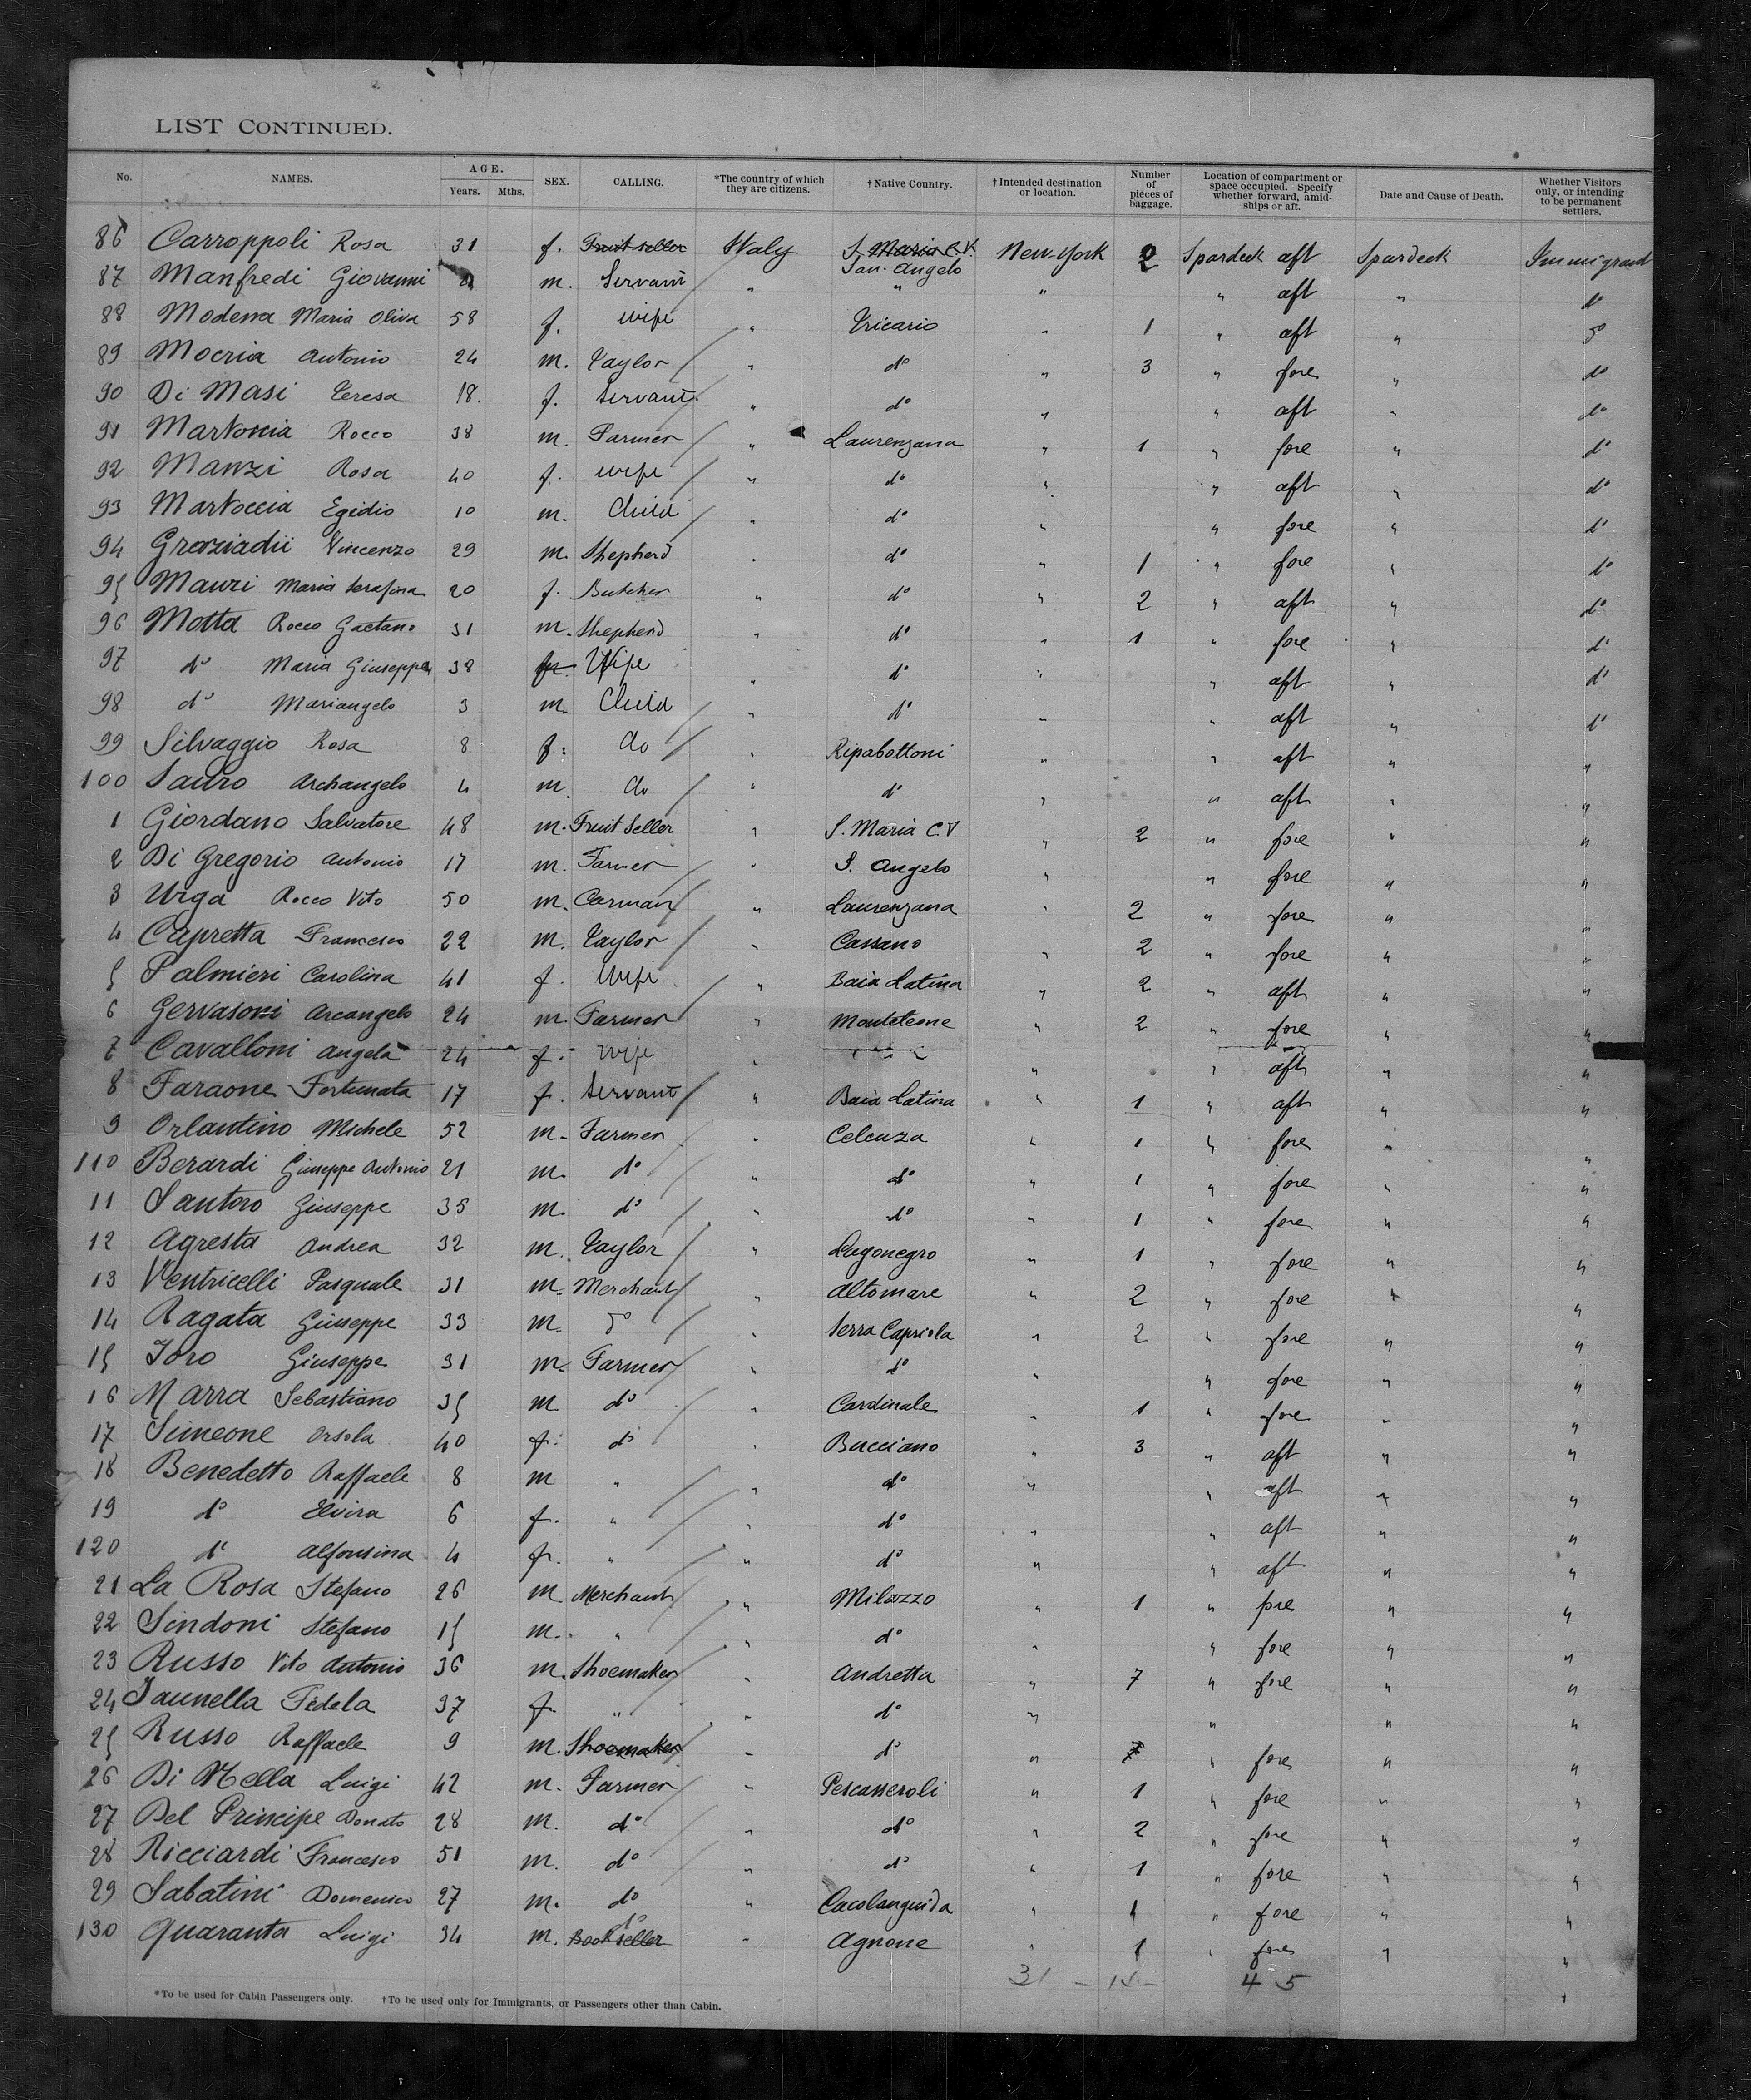 LIST CONTINUED.
No. NAMES. AGE. Years. Mths. SEX. CALLING. *The country of which they are citizens. †Native Country. †Intended destination or location. Number of pieces of baggage. Location of compartment or space occupied. Specify whether forward, amidships or aft. Date and Cause of Death. Whether Visitors only, or intending to be permanent settlers.
86 Carroppoli Rosa 31 f. Fruit seller Italy S. Maria C.V. San. Angelo New-York 2 Spardeck aft Spardeck Immigrant
87 Manfredi Giovanni m. Servant " " " " aft " do
88 Modena Maria Oliva 58 f. wife " Tricario " 1 " aft " do
89 Mocria Antonio 24 m. Taylor " do " 3 " fore " do
90 Di Masi Teresa 18. f. Servant " do " " aft " do
91 Martoccia Rocco 38 m. Farmer " Laurenzana " 1 " fore " do
92 Manzi Rosa 40 f. wife " do " " aft " do
93 Martoccia Egidio 10 m. Child " do " " fore " do
94 Graziadii Vincenzo 29 m. Shepherd " do " 1 " fore " do
95 Mauri Maria Serafina 20 f. Butcher " do " 2 " aft " do
96 Motta Rocco Gaetano 31 m. Shepherd " do " 1 " fore " do
97 do Maria Giuseppa 38 Wife " do " " aft " do
98 do Mariangelo 3 m. Child " do " " aft " do
99 Silvaggio Rosa 8 f. do " Ripabottoni " " aft " "
100 Sauro Archangelo 4 m. do " do " " aft " "
1 Giordano Salvatore 48 m. Fruit Seller " S. Maria C.V " 2 " fore " "
2 Di Gregorio Antonio 17 m. Farmer " S. Angelo " " fore " "
3 Urga Rocco Vito 50 m. Carman " Laurenzana " 2 " fore " "
4 Capretta Francesco 22 m. Taylor " Cassano " 2 " fore " "
5 Palmieri Carolina 41 f. Wife " Baia Latina " 2 " aft " "
6 Gervasoni Arcangelo 24 m. Farmer " Monteleone " 2 " fore " "
7 Cavalloni Angela 24 f. wife " " " aft " "
8 Faraone Fortunata 17 f. Servant " Baia Latina " 1 " aft " "
9 Orlantino Michele 52 m. Farmer " Celenza " 1 " fore " "
110 Berardi Giuseppe Antonio 21 m. do " do " 1 " fore " "
11 Santoro Giuseppe 35 m. do " do " 1 " fore " "
12 Agresta Andrea 32 m. Taylor " Lagonegro " 1 " fore " "
13 Ventricelli Pasquale 31 m. Merchant " Altomare " 2 " fore " "
14 Ragata Giuseppe 33 m. do " Serra Capriola " 2 " fore " "
15 Ioro Giuseppe 31 m. Farmer " do " " fore " "
16 Marra Sebastiano 35 m do " Cardinale " 1 " fore " "
17 Simeone Orsola 40 f. do " Bucciano " 3 " aft " "
18 Benedetto Raffaele 8 m " " do " " aft " "
19 do Elvira 6 f. " " do " " aft " "
120 do Alfonsina 4 f. " " do " " aft " "
21 La Rosa Stefano 26 m Merchant " Milazzo " 1 " fore " "
22 Sindoni Stefano 15 m. " " do " " fore " "
23 Russo Vito Antonio 36 m. Shoemaker " Andretta " 7 " fore " "
24 Iannella Fedela 37 f. " " do " " " "
25 Russo Raffaele 9 m. Shoemaker " do " 7 " fore " "
26 Di Nella Luigi 42 m. Farmer " Pescasseroli " 1 " fore " "
27 Del Principe Donato 28 m. do " do " 2 " fore " "
28 Ricciardi Francesco 51 m. do " do " 1 " fore " "
29 Sabatini Domenico 27 m. do " Cacolanguida " 1 " fore " "
130 Quaranta Luigi 34 m. do Bookseller " Agnone " 1 " fore " "
31 - 14 - 45
*To be used for Cabin Passengers only. †To be used only for Immigrants, or Passengers other than Cabin.